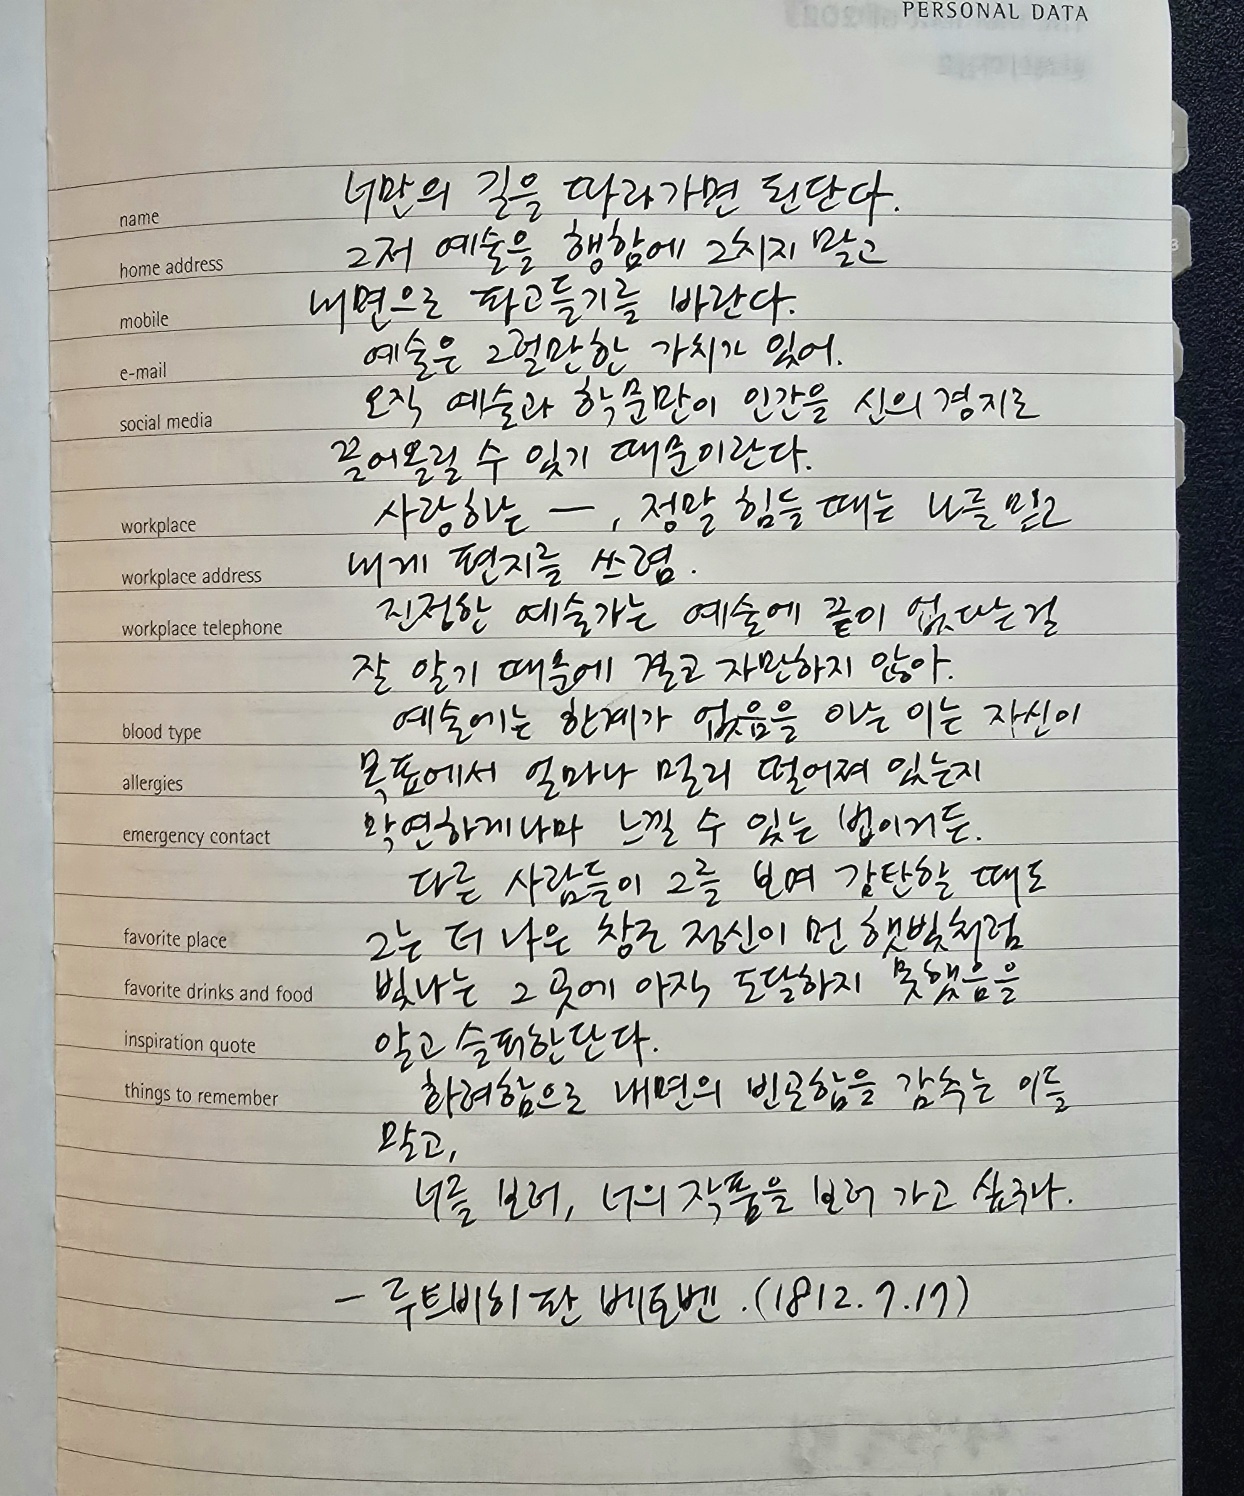 PERSONAL DATA
너만의 길을 따라가면 된단다.
name
그저 예술을 행함에 그치지 말고
home address
내면으로 파고들기를 바란다.
mobile
예술은 그럴만한 가치가 있어.
e-mail
오직 예술과 학문만이 인간을 신의 경지로
social media
끌어올릴 수 있기 때문이란다.
사랑하는 ㅡ, 정말 힘들 때는 나를 믿고
workplace
내게 편지를 쓰렴.
workplace address
진정한 예술가는 예술에 끝이 없다는걸
workplace telephone
잘 알기 때문에 결코 자만하지 않아.
예술에는 한계가 없음을 아는 이는 자신이
blood type
목표에서 얼마나 멀리 떨어져 있는지
allergies
막연하게나마 느낄 수 있는 법이거든.
emergency contact
다른 사람들이 그를 보며 감탄할 때도
그는 더 나은 창조 정신이 먼 햇빛처럼
favorite place
빛나는 그 곳에 아직 도달하지 못했음을
favorite drinks and food
알고 슬퍼한단다.
inspiration quote
화려함으로 내면의 빈곤함을 감추는 이들
things to remember
말고,
너를 보러, 너의 작품을 보러 가고 싶구나.
- 루트비히 판 베토벤.(1812.7.17)